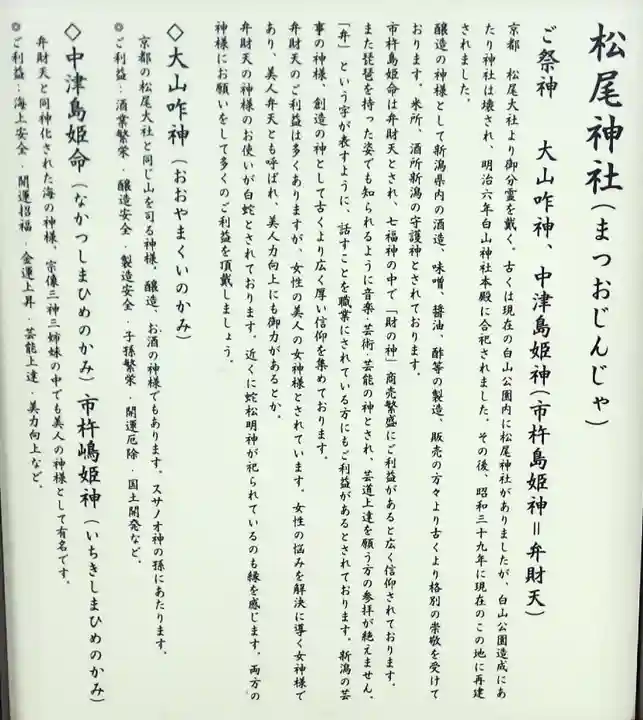 松尾神社(まつおじんじゃ)
ご祭神 大山咋神、中津島姫神(市杵島姫神=弁財天)
京都 松尾大社より御分霊を戴く、古くは現在の白山公園内に松尾神社がありましたが、白山公園造成にあ
たり神社は壊され、明治六年白山神社本殿に合祀されました。その後、昭和三十九年に現在のこの地に再建
されました。
醸造の神様として新潟県内の酒造、味噌、醤油、酢等の製造、販売の方々より古くより格別の崇敬を受けて
おります。米所、酒所新潟の守護神とされております。
市杵島姫命は弁財天とされ、七福神の中で「財の神」商売繁盛にご利益があると広く信仰されております。
また琵琶を持った姿でも知られるように音楽・芸術・芸能の神とされ、芸道上達を願う方の参拝が絶えません。
「弁」という字が表すように、話すことを職業にされている方にもご利益があるとされております。新潟の芸
事の神様、創造の神として古くより広く厚い信仰を集めております。
弁財天のご利益は多くありますが、女性の美人の女神様とされています。女性の悩みを解決に導く女神様で
あり、美人弁天とも呼ばれ、美人力向上にも御力があるとか。
弁財天の神様のお使いが白蛇とされております。近くに蛇松明神が祀られているのも縁を感じます。両方の
神様にお願いをして多くのご利益を頂戴しましょう。
◇大山咋神(おおやまくいのかみ)
京都の松尾大社と同じ山を司る神様。醸造、お酒の神様でもあります。スサノオ神の孫にあたります。
◎ご利益:酒業繁栄・醸造安全・製造安全・子孫繁栄・開運厄除・国土開発など。
◇中津島姫命(なかつしまひめのかみ)市杵嶋姫神(いちきしまひめのかみ)
弁財天と同神化された海の神様、宗像三神三姉妹の中でも美人の神様として有名です。
◎ご利益:海上安全・開運招福・金運上昇・芸能上達・美力向上など。